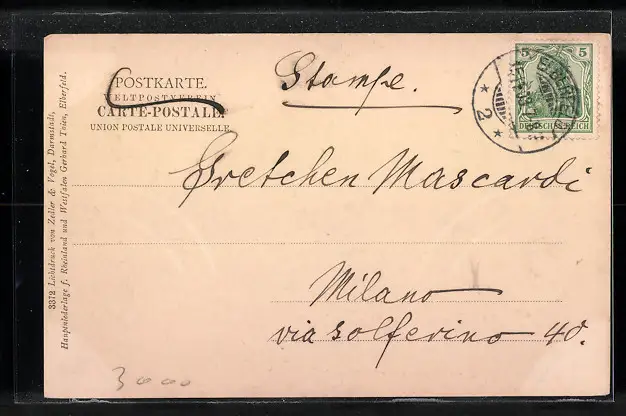 POSTKARTE.
WELTPOSTVEREIN
CARTE-POSTALE.
UNION POSTALE UNIVERSELLE.
Stampe.
5 5
DEUTSCHES REICH
ELBERFELD
* 2 *
Gretchen Mascardi
Milano
via Solferino 40.
3372 Lichtdruck von Zedler & Vogel, Darmstadt,
Hauptniederlage f. Rheinland und Westfalen Gerhard Tnien, Elberfeld.
3000